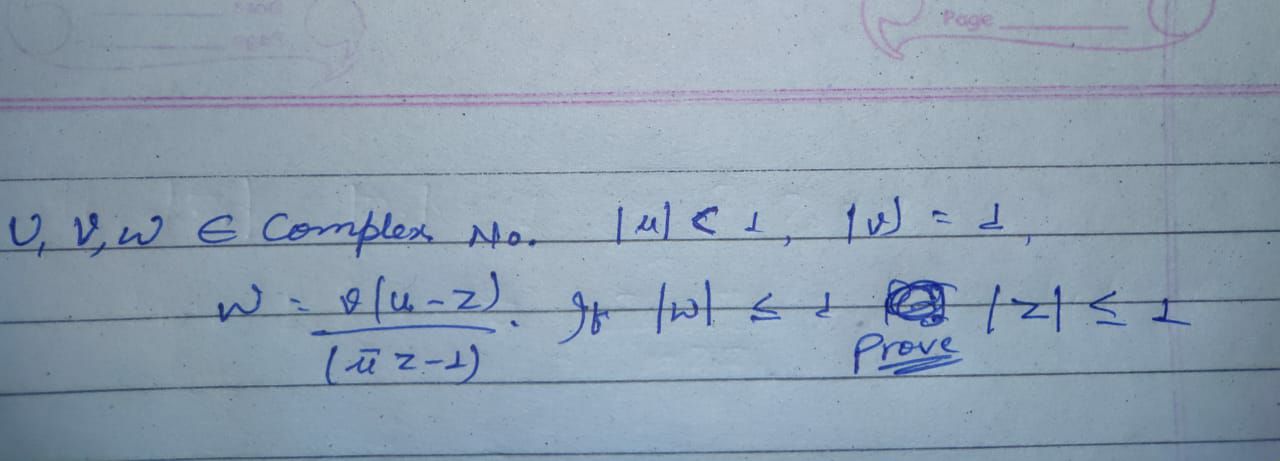 Page
U, V, w ∈ Complex No. |u| < 1, |v| = 1,
w = v(u-z) / (ū z-1). If |w| ≤ 1 |z| ≤ 1
Prove